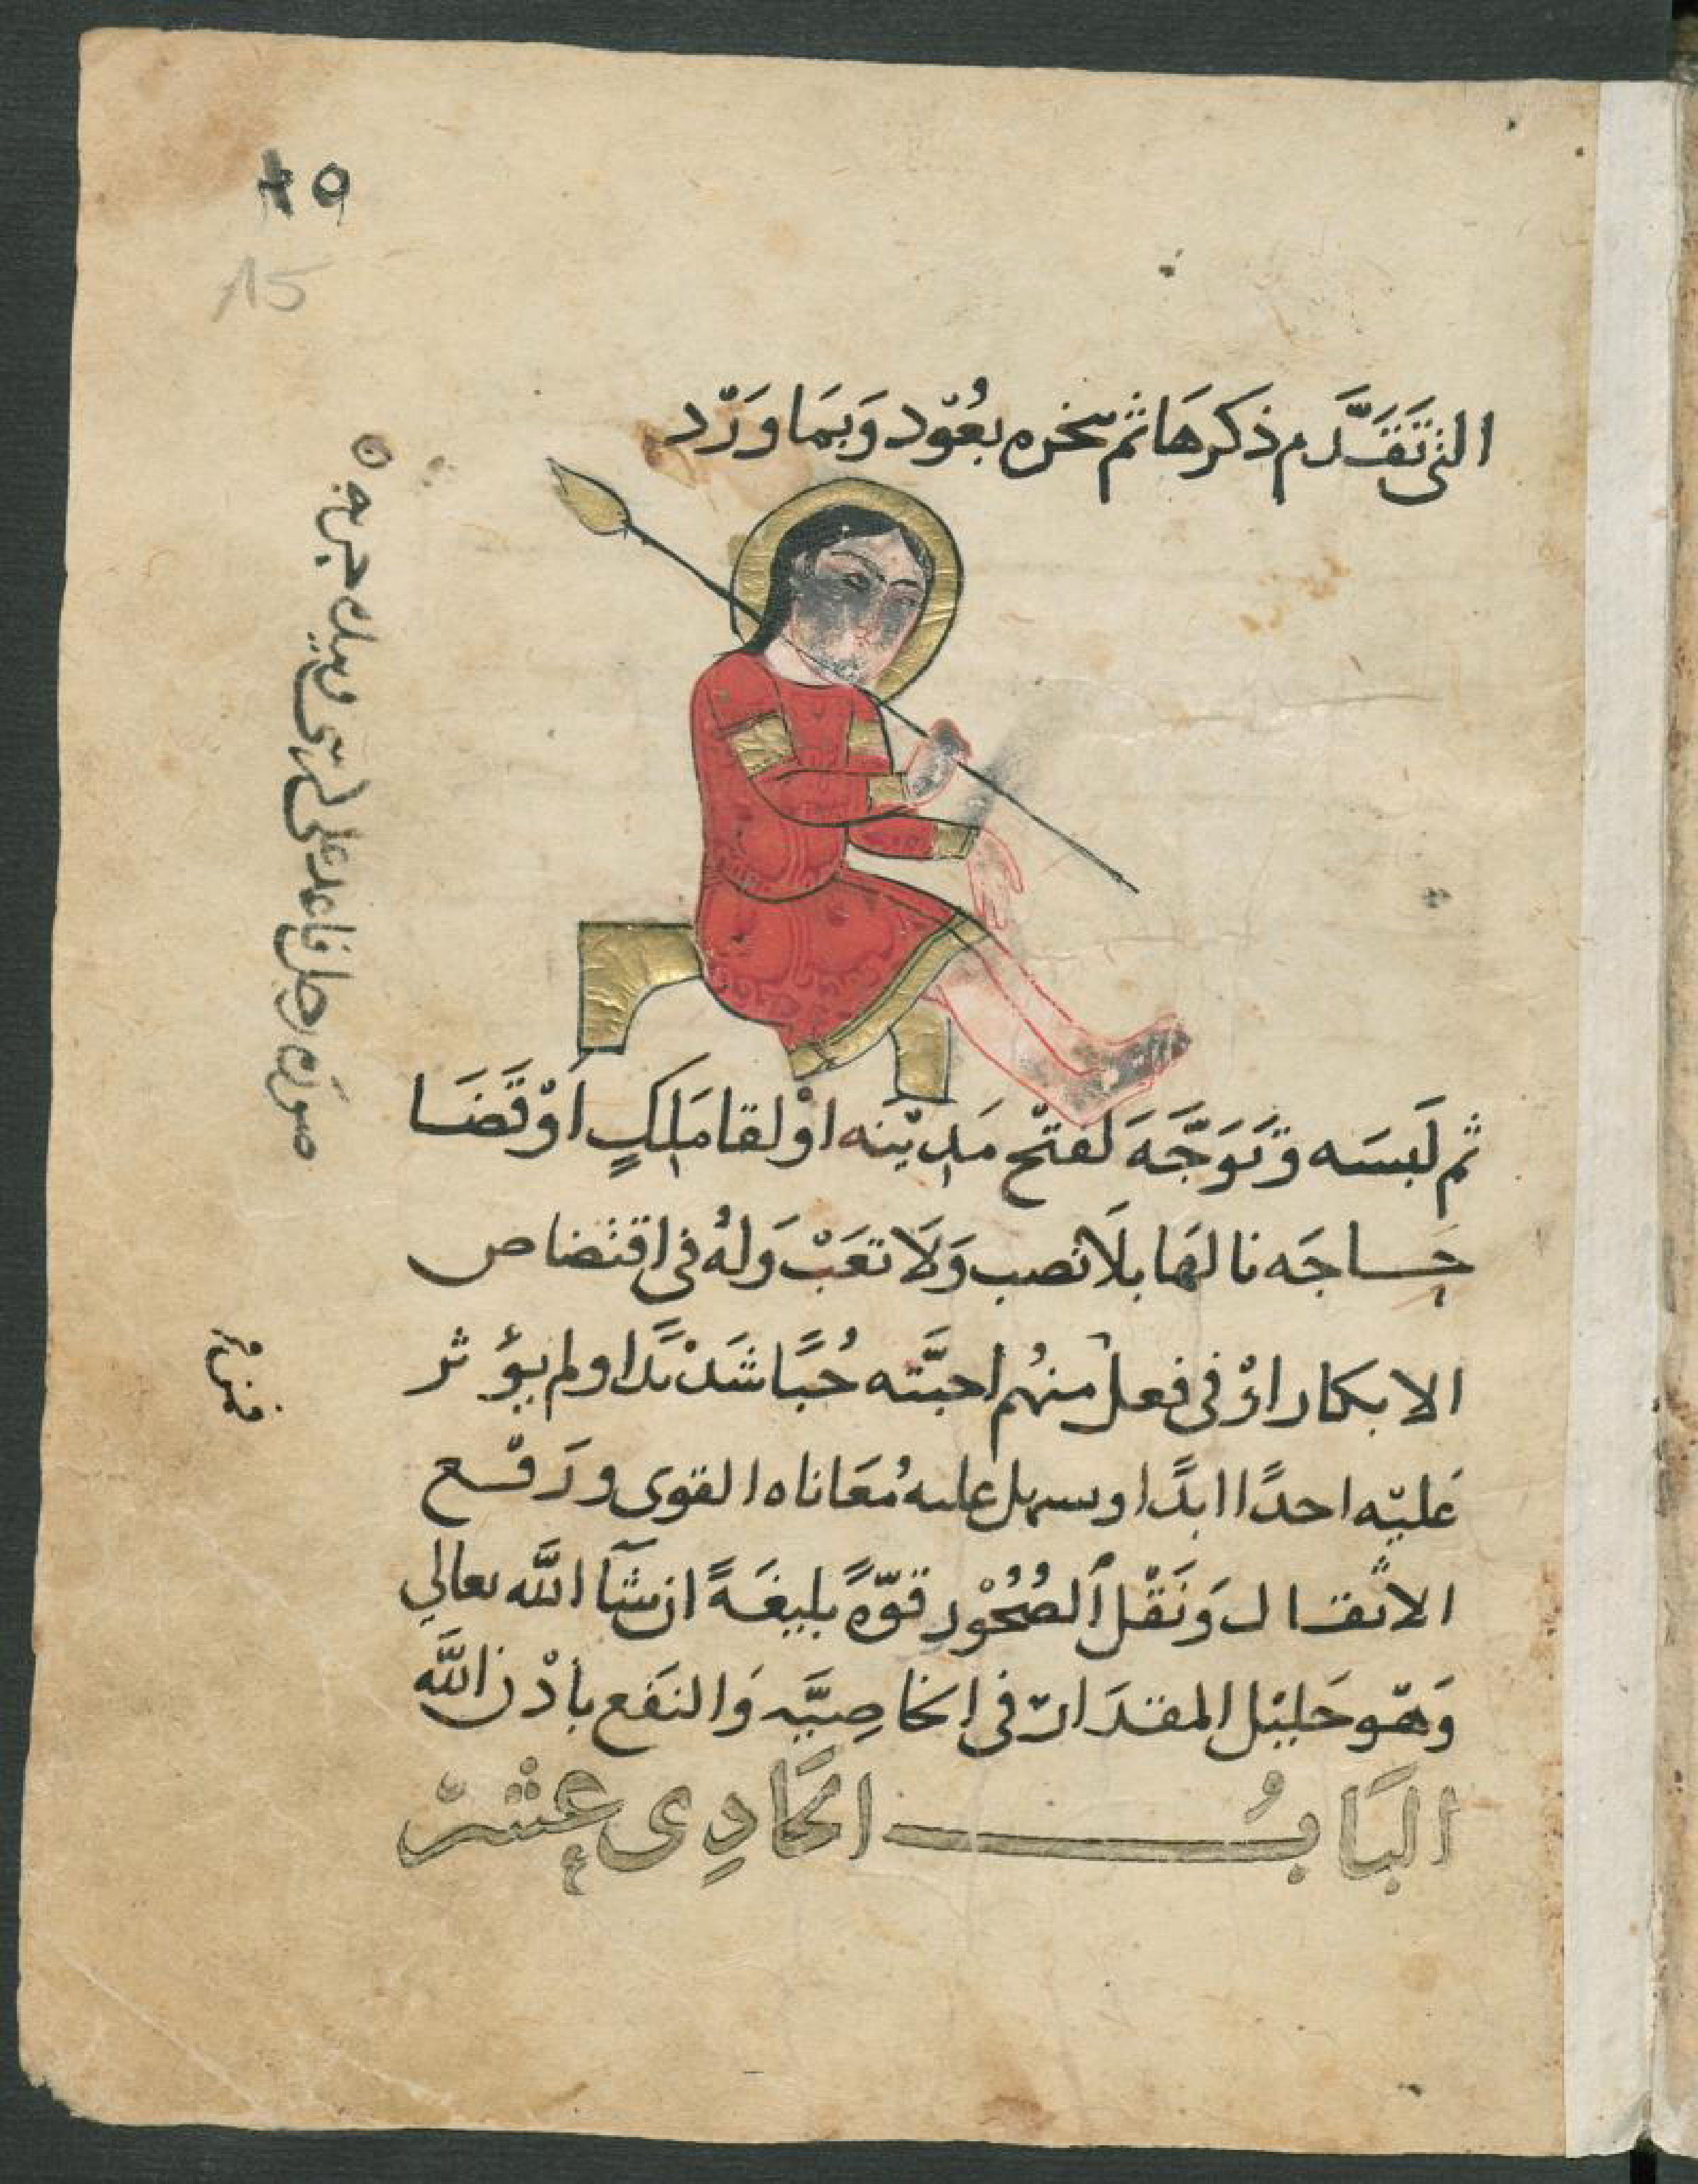 ١٥
15
التى تَقَدَّم ذكرهَا ثم بخره بعُوْد وَبمَا وَرْد
صوره رجل قاعد على كرسى وبيده حربه
ثم لَبسَه وَتَوَجَّهَ لفتْح مَدِيْنَه اوْ لقا مَلِكٍ اَوْ قَضَا
حَاجَه نالهَا بلَا نصب وَلَا تعَبْ وَلهُ فى اقتضاض
الابكار اوْ فى فعل منهُم احبَّته حُبًّا شَدْيدًا ولم يؤثر
عَليْه احدًا ابدًا وسهل عليه مُعَاناه القوى ورَفْع
الاثقال وَنَقْل الصُخُوْر قوّةً بليغَةً ان شَآ اللَّه تعالي
وَهْو جَليْل المقدَار فى الخاصِيَّه وَالنفَع بأذْن اللَّه
البَابُ الحَادِى عشرْ